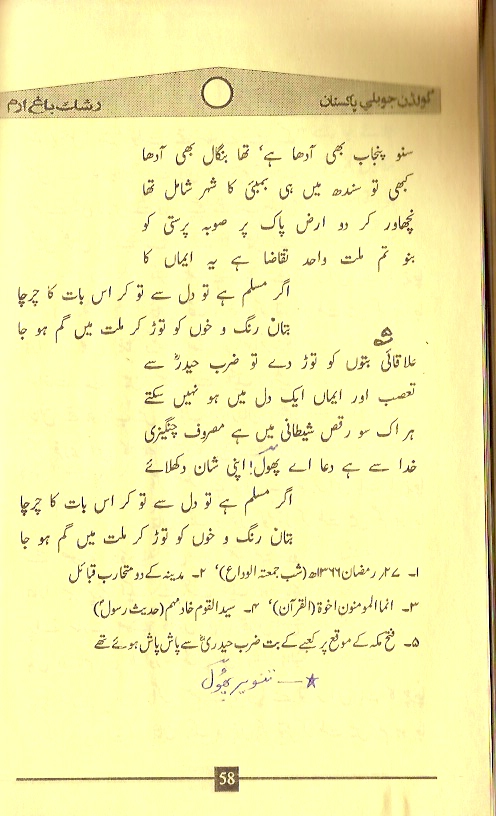 گولڈن جوبلی پاکستان
رشک باغ ارم
سنو پنجاب بھی آدھا ہے، تھا بنگال بھی آدھا
کبھی تو سندھ میں ہی بمبئی کا شہر شامل تھا
نچھاور کر دو ارض پاک پر صوبہ پرستی کو
بنو تم ملت واحد تقاضا ہے یہ ایماں کا
اگر مسلم ہے تو دل سے تو کر اس بات کا چرچا
بتان رنگ و خوں کو توڑ کر ملت میں گم ہو جا
۵
علاقائی بتوں کو توڑ دے تو ضرب حیدرؓ سے
تعصب اور ایماں ایک دل میں ہو نہیں سکتے
ہر اک سو رقص شیطانی میں ہے مصروف چنگیزی
خدا سے ہے دعا اے پھولؔ! اپنی شان دکھلائے
اگر مسلم ہے تو دل سے تو کر اس بات کا چرچا
بتان رنگ و خوں کو توڑ کر ملت میں گم ہو جا
۱۔ ۲۷ رمضان ۱۳۶۶ھ (شب جمعتہ الوداع)، ۲۔ مدینہ کے دو متحارب قبائل
۳۔ انما المومنون اخوۃ (القرآن)، ۴۔ سید القوم خادمہم (حدیث رسولؐ)
۵۔ فتح مکہ کے موقع پر کعبے کے بت ضرب حیدریؓ سے پاش پاش ہوئے تھے
★ — تنویر پھولؔ
58